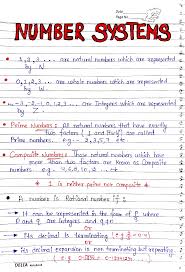 Date
Page No.
NUMBER SYSTEMS
1, 2, 3.... are natural numbers which are represented
by N
0, 1, 2, 3... are whole numbers which are represented
by W
-3, -2, -1, 0, 1, 2, 3... are Integers which are represented
by Z
Prime Numbers : All natural numbers that have exactly
two factors (1 and itself) are called
Prime numbers. eg- 2, 3, 5, 7 etc
Composite Numbers : Those natural numbers which have
more than two factors are known as Composite
numbers. eg - 4, 6, 8, 9 etc
1 is neither prime nor composite
A number is Rational number if :
It can be represented in the form of p/q where
P and q are Integers and q≠0
or
Its decimal is terminating
or
its decimal expansion is non terminating but repeating